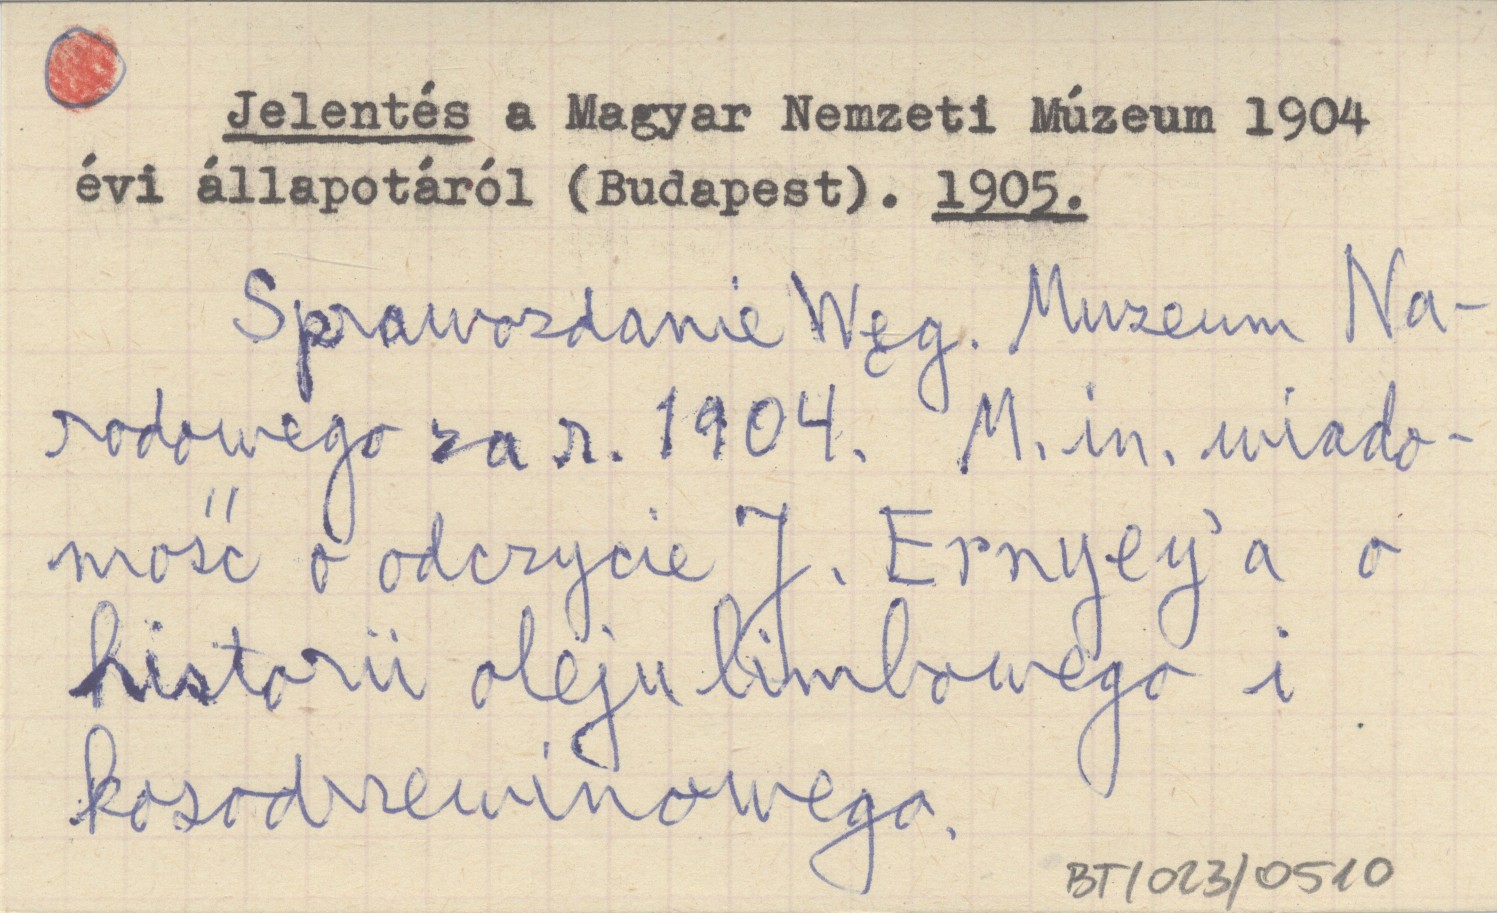 Jelentés a Magyar Nemzeti Múzeum 1904
évi állapotáról (Budapest). 1905.
Sprawozdanie Węg. Muzeum Na-
rodowego za r. 1904. M. in. wiado-
mość o odczycie J. Ernyey'a o
historii oleju limbowego i
kosodrzewinowego.
BT/023/0510